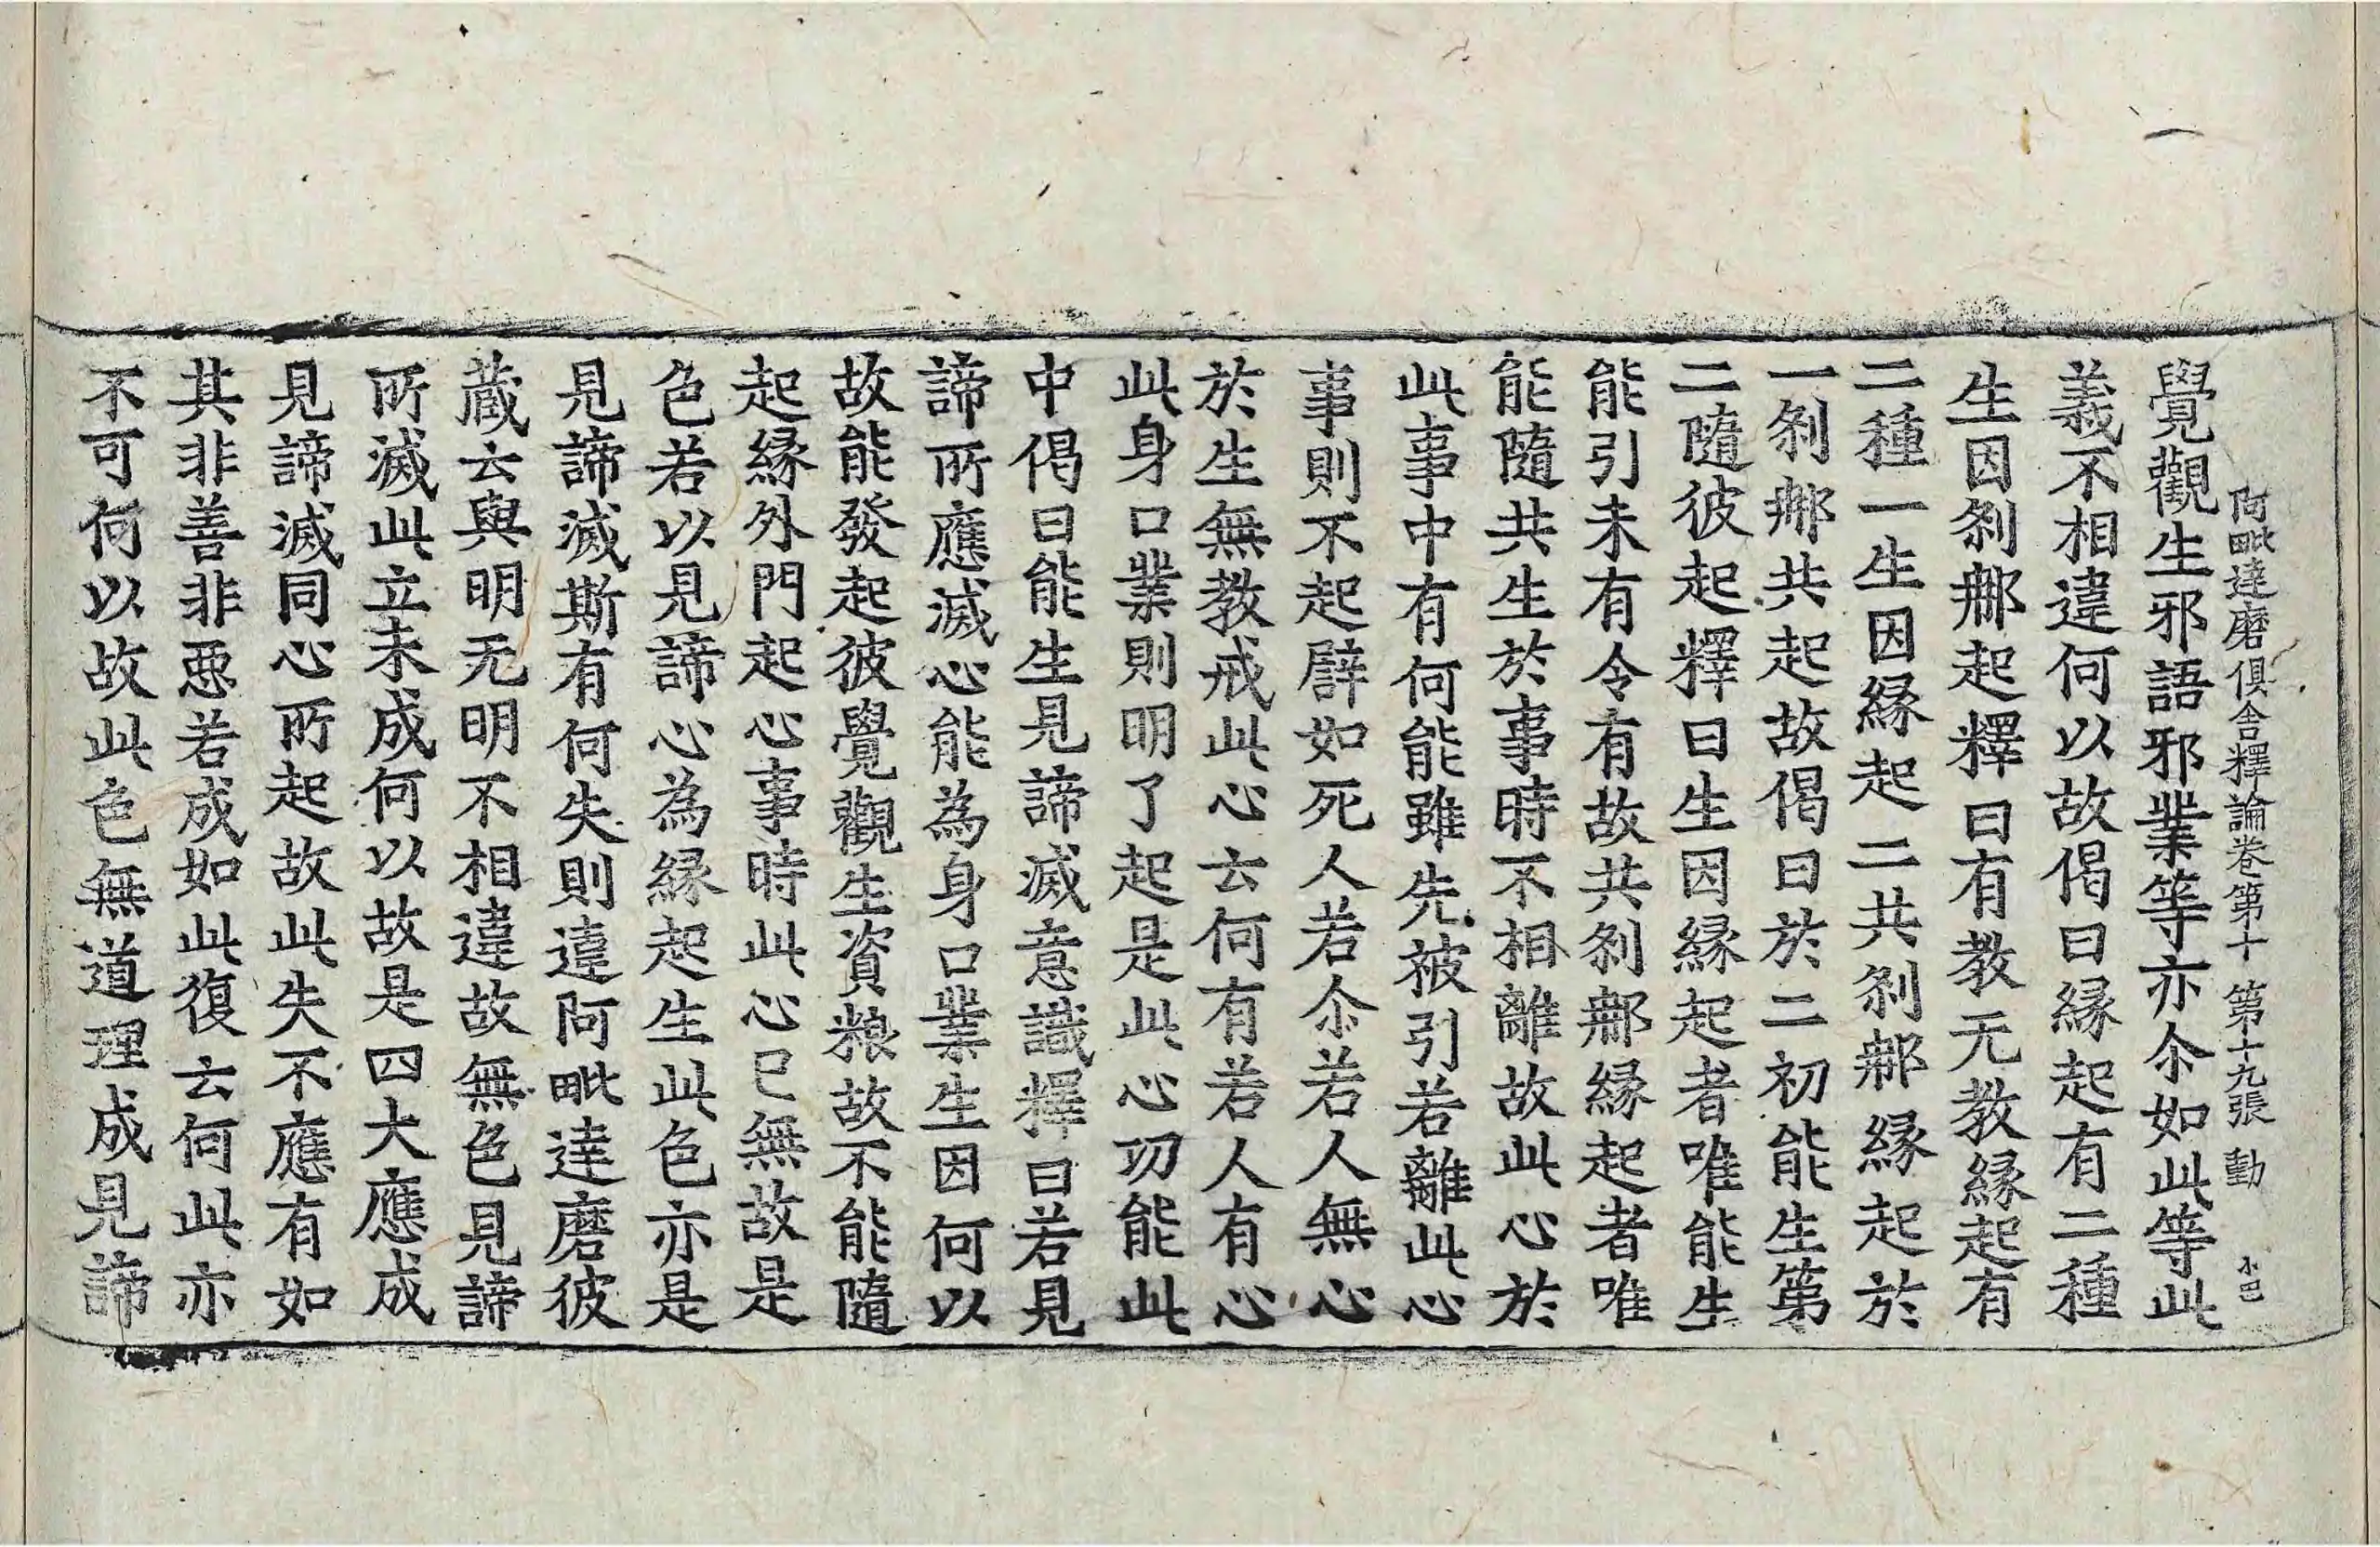 阿毗達磨俱舍釋論卷第十 第十九張 動 小巴
覺觀生邪語邪業等亦尒如此等此
義不相違何以故偈曰緣起有二種
生因剎郍起釋曰有教无教緣起有
二種一生因緣起二共剎郍緣起於
一剎郍共起故偈曰於二初能生第
二隨彼起釋曰生因緣起者唯能生
能引未有令有故共剎郍緣起者唯
能隨共生於事時不相離故此心於
此事中有何能雖先被引若離此心
事則不起譬如死人若尒若人無心
於生無教戒此心云何有若人有心
此身口業則明了起是此心功能此
中偈曰能生見諦滅意識釋曰若見
諦所應滅心能為身口業生因何以
故能發起彼覺觀生資粮故不能隨
起緣外門起心事時此心已無故是
色若以見諦心為緣起生此色亦是
見諦滅斯有何失則違阿毗達磨彼
藏云與明无明不相違故無色見諦
所滅此立未成何以故是四大應成
見諦滅同心所起故此失不應有如
其非善非惡若成如此復云何此亦
不可何以故此色無道理成見諦